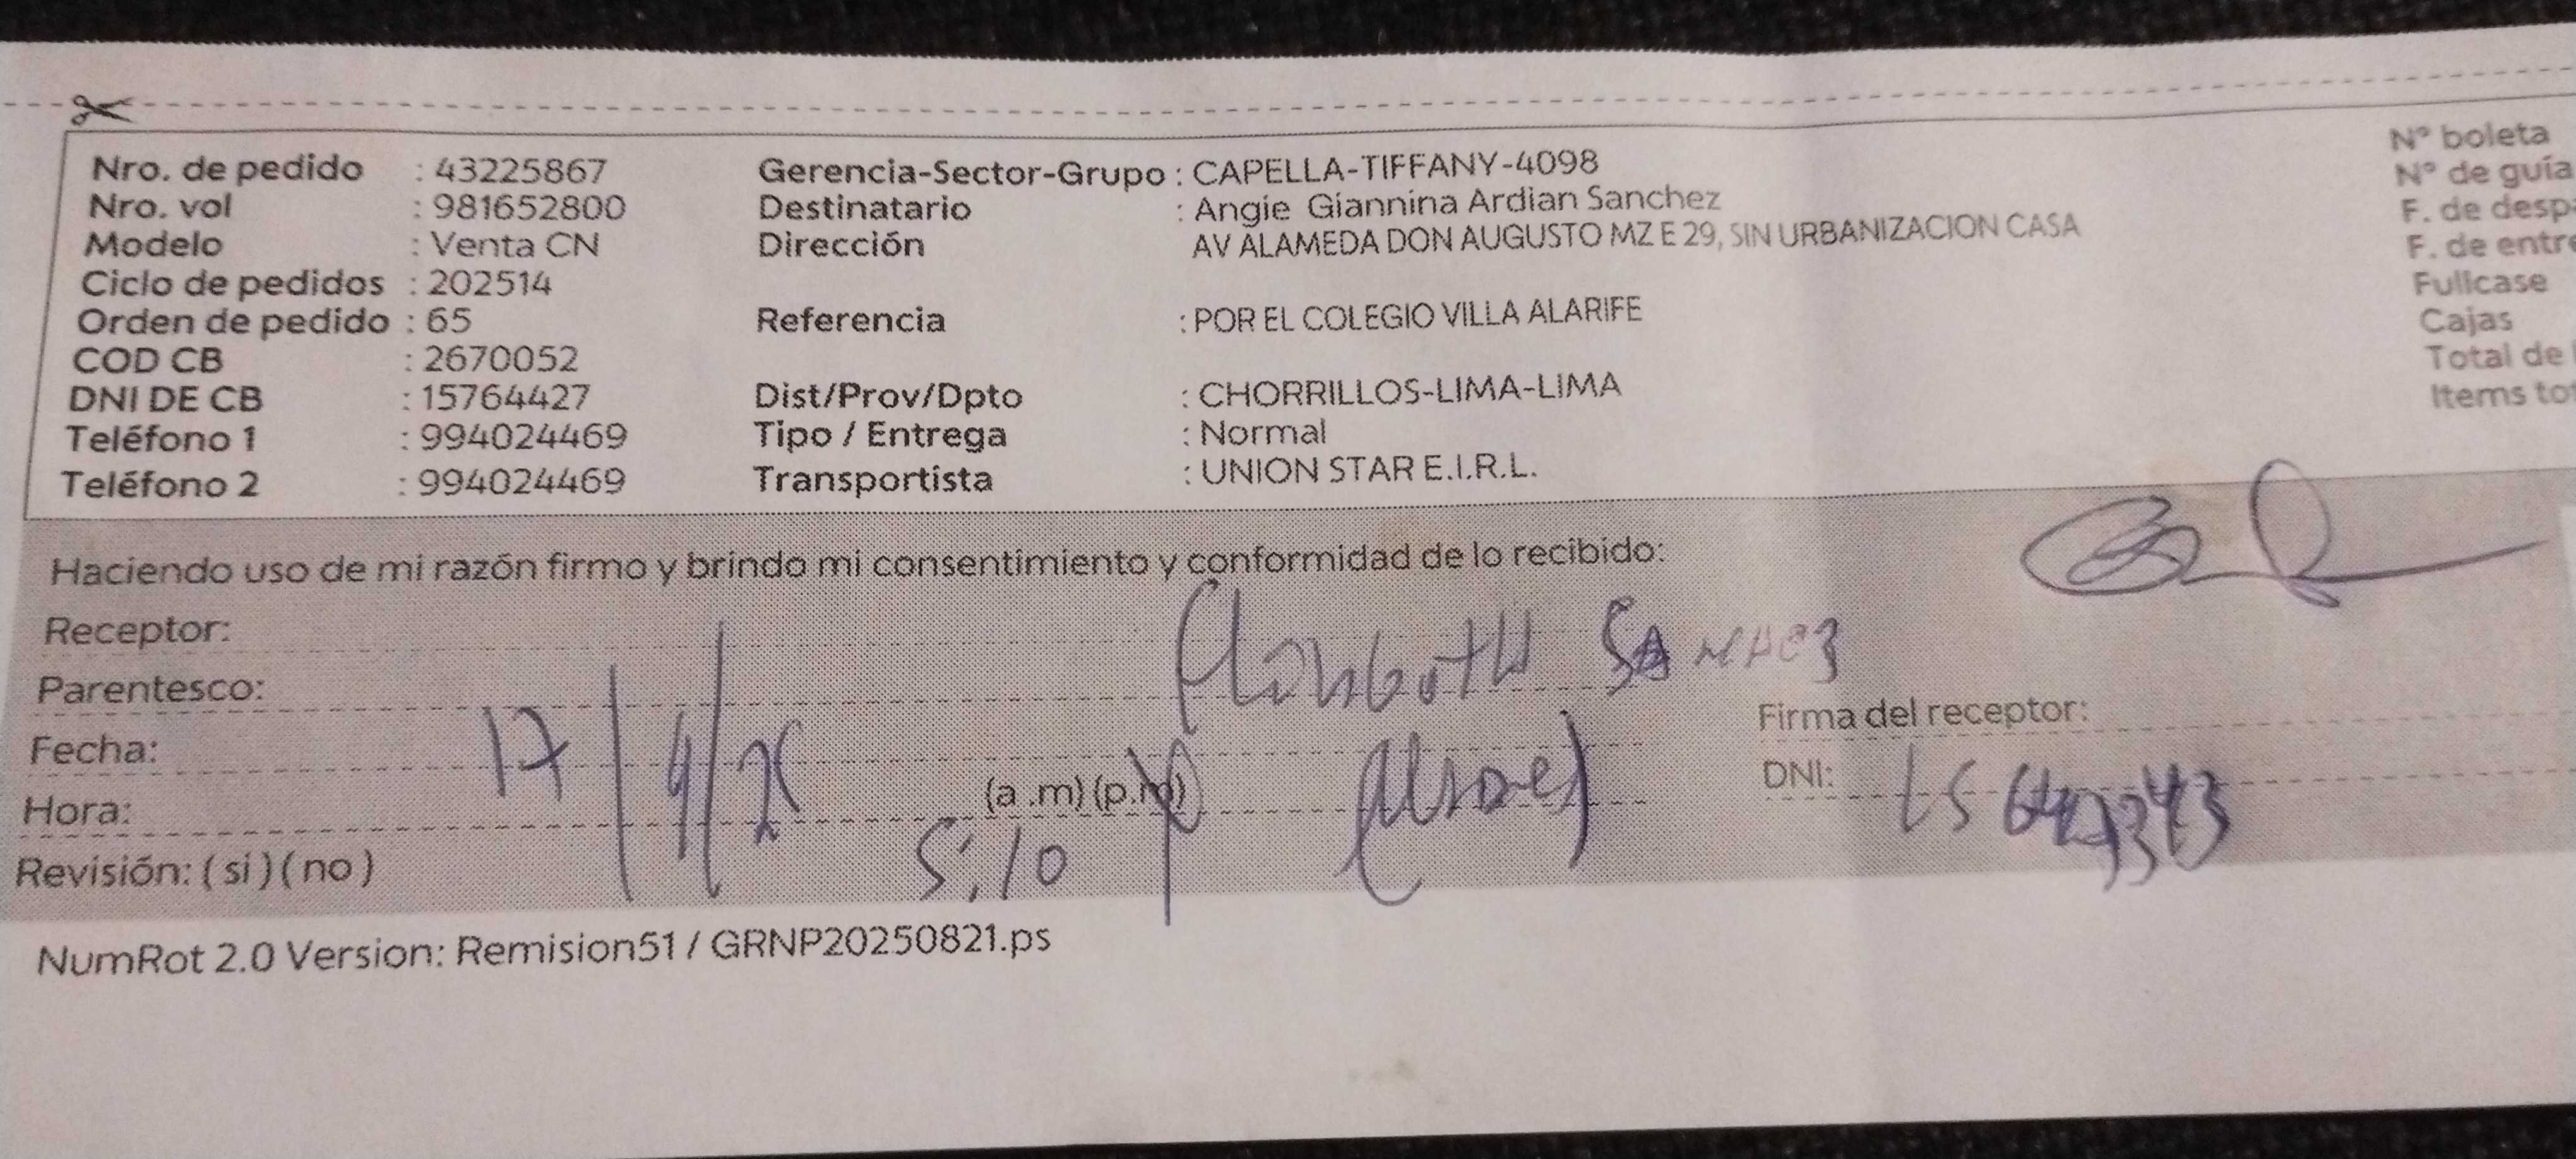 Nro. de pedido : 43225867
Nro. vol : 981652800
Modelo : Venta CN
Ciclo de pedidos : 202514
Orden de pedido : 65
COD CB : 2670052
DNI DE CB : 15764427
Teléfono 1 : 994024469
Teléfono 2 : 994024469
Gerencia-Sector-Grupo : CAPELLA-TIFFANY-4098
Destinatario : Angie Giannina Ardian Sanchez
Dirección AV ALAMEDA DON AUGUSTO MZ E 29, SIN URBANIZACION CASA
Referencia : POR EL COLEGIO VILLA ALARIFE
Dist/Prov/Dpto : CHORRILLOS-LIMA-LIMA
Tipo / Entrega : Normal
Transportista : UNION STAR E.I.R.L.
N° boleta
N° de guía
F. de desp
F. de entre
Fullcase
Cajas
Total de
Items to
Haciendo uso de mi razón firmo y brindo mi consentimiento y conformidad de lo recibido:
Receptor:
Parentesco:
Fecha: 17/9/25
Hora: 5:10 (a .m) (p.m)
Revisión: ( si ) ( no )
Firma del receptor:
DNI:
NumRot 2.0 Version: Remision51 / GRNP20250821.ps